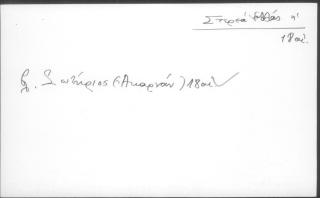 Στερεά Ελλάς
18 αι.
βλ. Σωτήριος (Ἀκαρνάν) 18 αι.